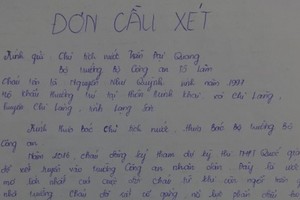 ĐƠN CẦU XÉT
Kính gửi: Chủ tịch nước Trần Đại Quang
Bộ trưởng Bộ Công an Tô Lâm
Cháu tên là: Nguyễn Như Quỳnh sinh năm 1997
Hộ khẩu thường trú tại thôn xã Chi Lăng,
huyện Chi Lăng, tỉnh Lạng Sơn
Kính thưa Bác Chủ tịch nước, thưa Bác Bộ trưởng Bộ
Công an
Năm 2016 cháu đăng ký tham dự kỳ thi THPT Quốc gia
để xét tuyển vào trường Công an nhân dân. Đây là ước
mơ lớn nhất của cháu từ khi còn ngồi trên
nhà trường. Cháu đã rất cố gắng nỗ lực phấn đấu